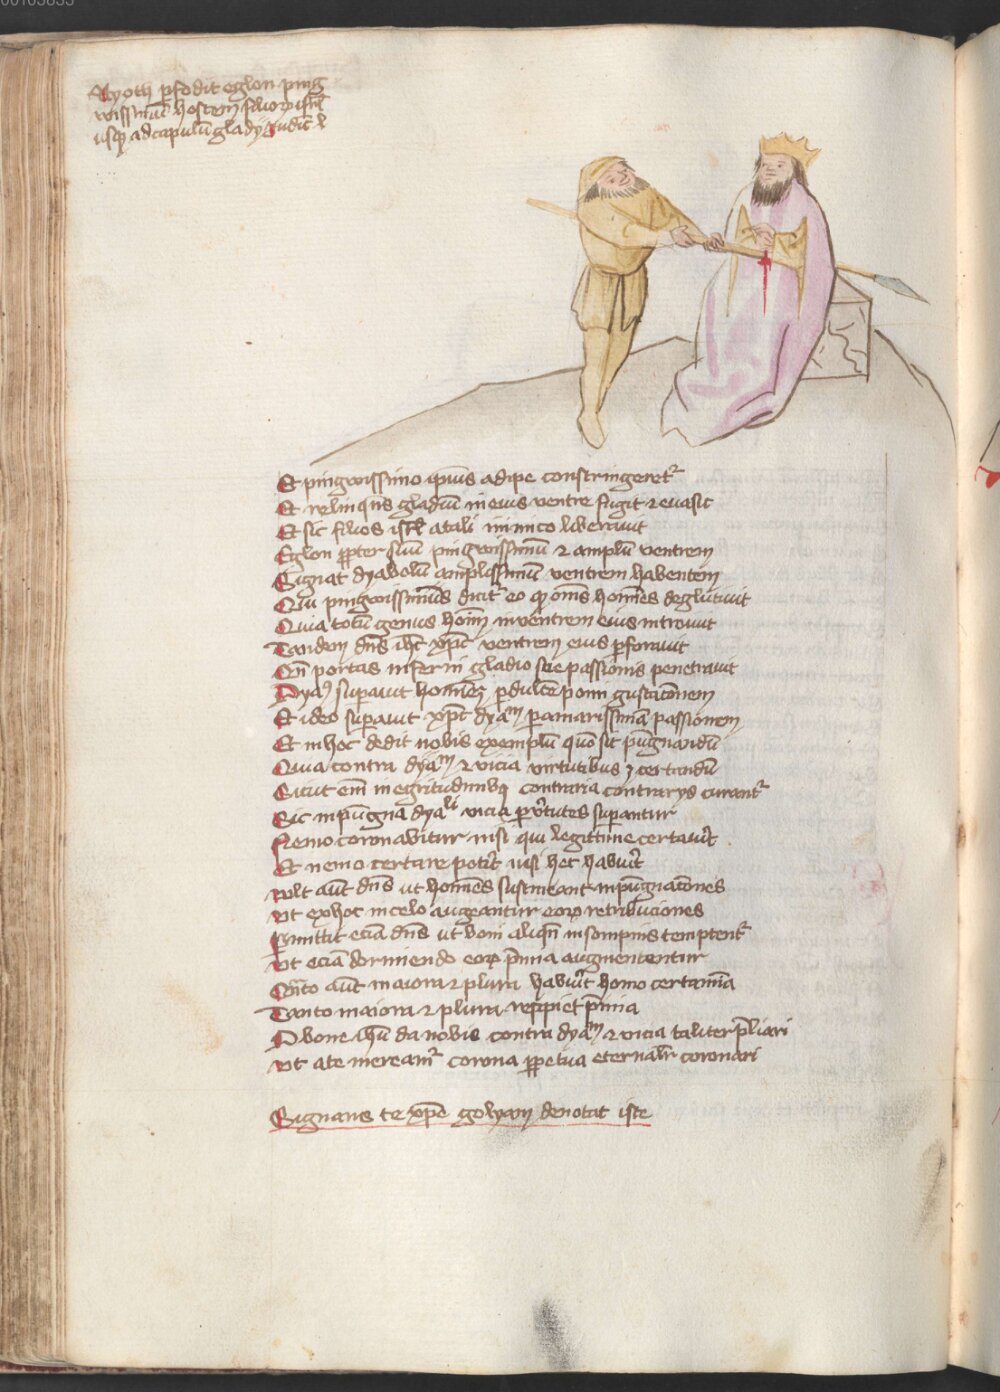 Ayoth p̄fodit eglon ping
wissimū hostem filiorū isrl̄
usqȝ ad capulū gladij Judic̄
Et pingwissimo ip̄ius adipe constringeret᷑
Et relinquēs gladiū in eius ventre fugit ⁊ evasit
Et sic filios isrl̄ a tali inimico liberavit
Eglon ꝓpter suū pingwissimū ⁊ amplū ventrem
Signat dyabolū amplissimū ventrem habentem
Qui pingwissimus dicit᷑ eo ꝙ om̄s hoīes deglutivit
Quia totū genus hoīm in ventrem eius intravit
Tandem dn̄s ih̄c xp̄c ventrem eius ꝑforavit
Cū portas inferni gladio sue passionis penetravit
Dya᷑ suꝑavit hoīes ꝑ dulcē pomi gustacōnem
Et ideo suꝑavit xp̄c dyaᵐ ꝑ amarissimā passionem
Et in hoc dedit nobis exemplū quō sit pūgnandū
Quia contra dyaᵐ ⁊ vicia virtutibus ꝫ certandū
Sicut em̄ in egritudinibȝ contraria contrarijs curant᷑
Sic in pūgna dyaˡⁱ vicia ꝑ v̓tutes suꝑantur
Nemo coronabitur nisi qui legittime certav̓it
Et nemo certare potīt nisi hec habuīt
Vult aūt dn̄s ut hoīes sustineant inpūgnacōnes
Ut ex hoc in celo augeantur eoꝝ retribuciones
ꝑmittit eciā dn̄s ut boni aliqn̄ in sompnis temptent᷑
Ut eciā dormiendo eoꝝ p̄mia augmententur
Qn̄to aūt maiora ⁊ plura habuīt homo certamīa
Tanto maiora ⁊ plura recipiet p̄mia
O bone ih̄u da nobis contra dyaᵐ ⁊ vicia taliter p̄liari
Ut a te meream᷑ corona ꝑpetua eternalr̄ coronari
Signans te xp̄e golyam denotat iste